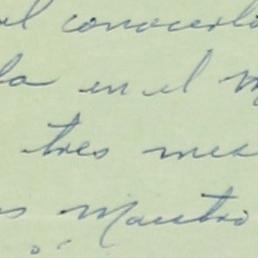 el conocerlo
la en el M
tres mes
s Maestro